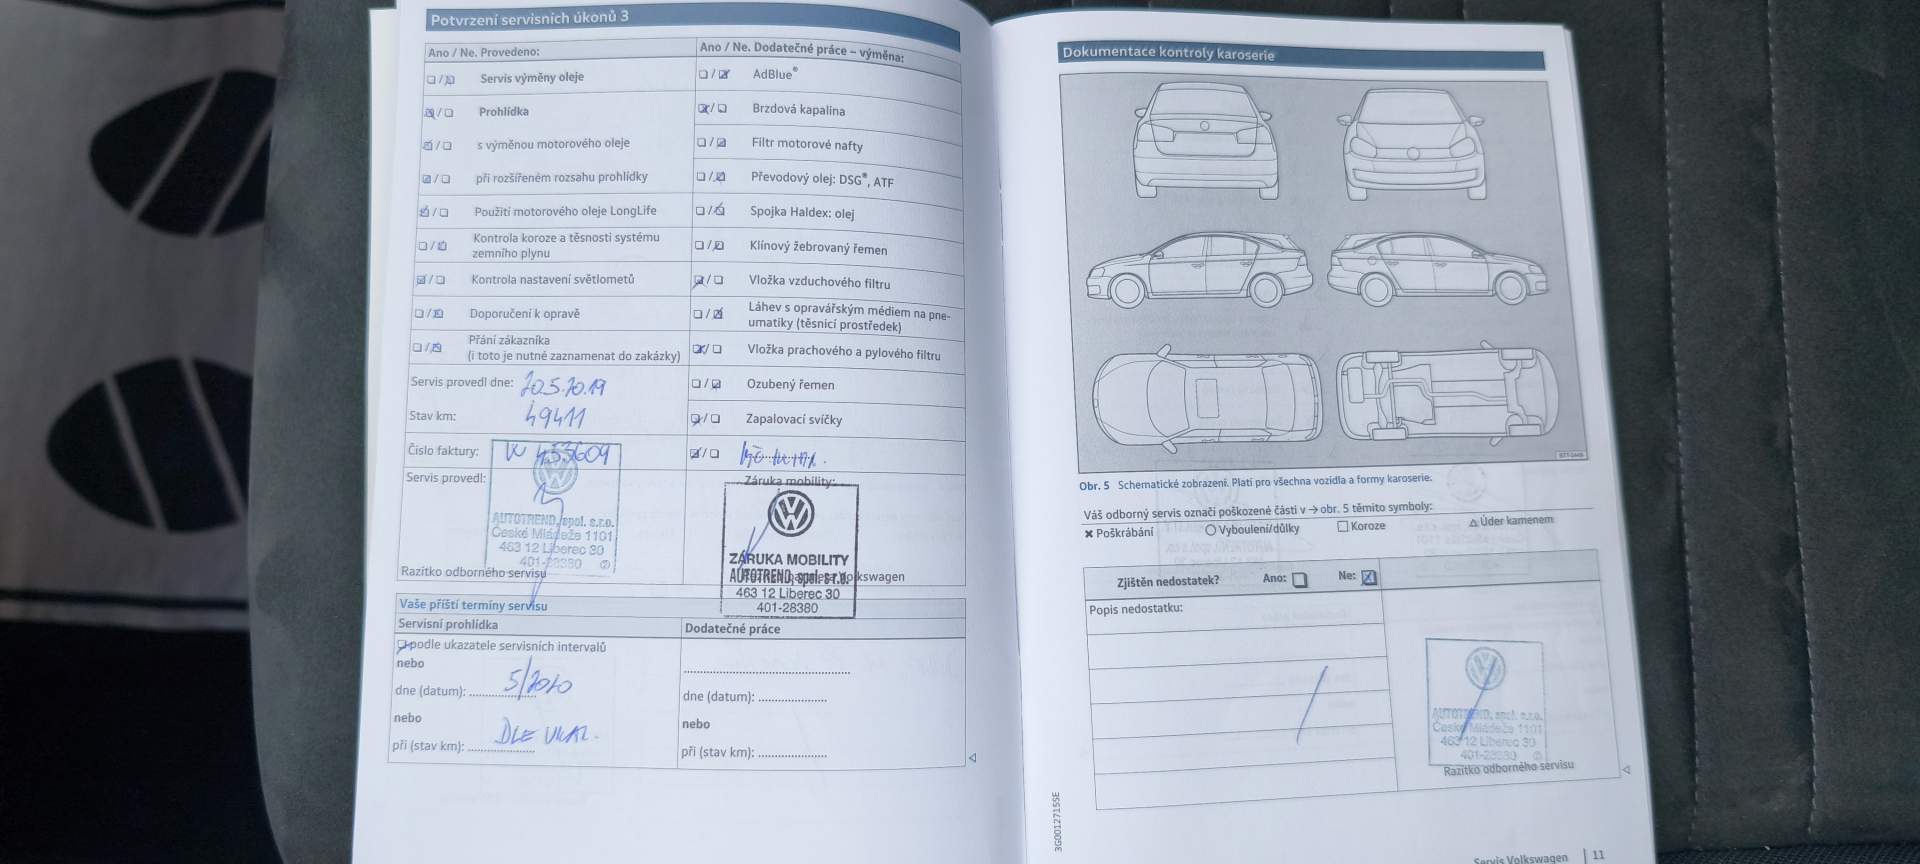 Potvrzení servisních úkonů 3
Ano / Ne. Provedeno:
Servis výměny oleje
Prohlídka
s výměnou motorového oleje
při rozšířeném rozsahu prohlídky
Použití motorového oleje LongLife
Kontrola koroze a těsnosti systému
zemního plynu
Kontrola nastavení světlometů
Doporučení k opravě
Přání zákazníka
(i toto je nutné zaznamenat do zakázky)
Servis provedl dne: 20.5.2019
Stav km: 49411
Číslo faktury: 453609
Servis provedl:
AUTOTREND, spol. s.r.o.
České Mládeže 1101
463 12 Liberec 30
401-28380
Razítko odborného servisu
Ano / Ne. Dodatečné práce – výměna:
AdBlue®
Brzdová kapalina
Filtr motorové nafty
Převodový olej: DSG®, ATF
Spojka Haldex: olej
Klínový žebrovaný řemen
Vložka vzduchového filtru
Láhev s opravářským médiem na pne-
umatiky (těsnicí prostředek)
Vložka prachového a pylového filtru
Ozubený řemen
Zapalovací svíčky
Záruka mobility:
ZÁRUKA MOBILITY
AUTOTREND, spol. s r.o.
463 12 Liberec 30
401-28380
Vaše příští termíny servisu
Servisní prohlídka
podle ukazatele servisních intervalů
nebo
dne (datum): 5/2020
nebo
při (stav km): DLE UKAZ.
Dodatečné práce
dne (datum):
nebo
při (stav km):
Dokumentace kontroly karoserie
Obr. 5 Schematické zobrazení. Platí pro všechna vozidla a formy karoserie.
Váš odborný servis označí poškozené části v → obr. 5 těmito symboly:
Poškrábání Vyboulení/důlky Koroze Úder kamenem
Zjištěn nedostatek? Ano: Ne:
Popis nedostatku:
AUTOTREND, spol. s.r.o.
České Mládeže 1101
463 12 Liberec 30
401-28380
Razítko odborného servisu
3G0012715SE
Servis Volkswagen 11